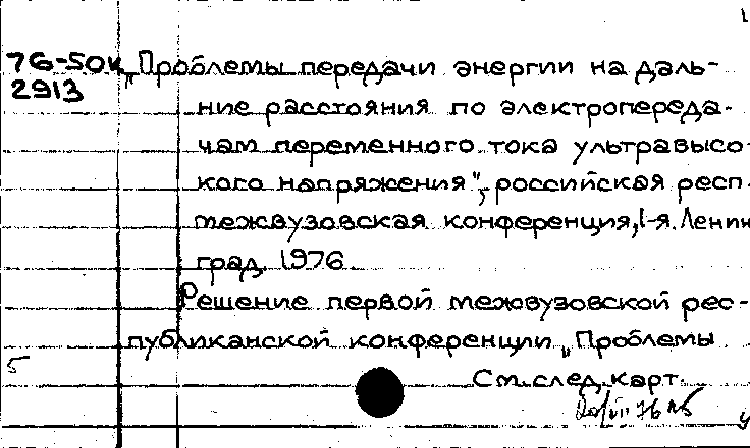 1
76-50к „Проблемы передачи энергии на даль-
2913 ние расстояния по электропереда-
чам переменного тока ультравысо-
кого напряжения", российская респ.
межвузовская конференция, 1-я. Ленин-
град. 1976.
Решение первой межвузовской рес-
публиканской конференции „Проблемы
5
См. след. карт.